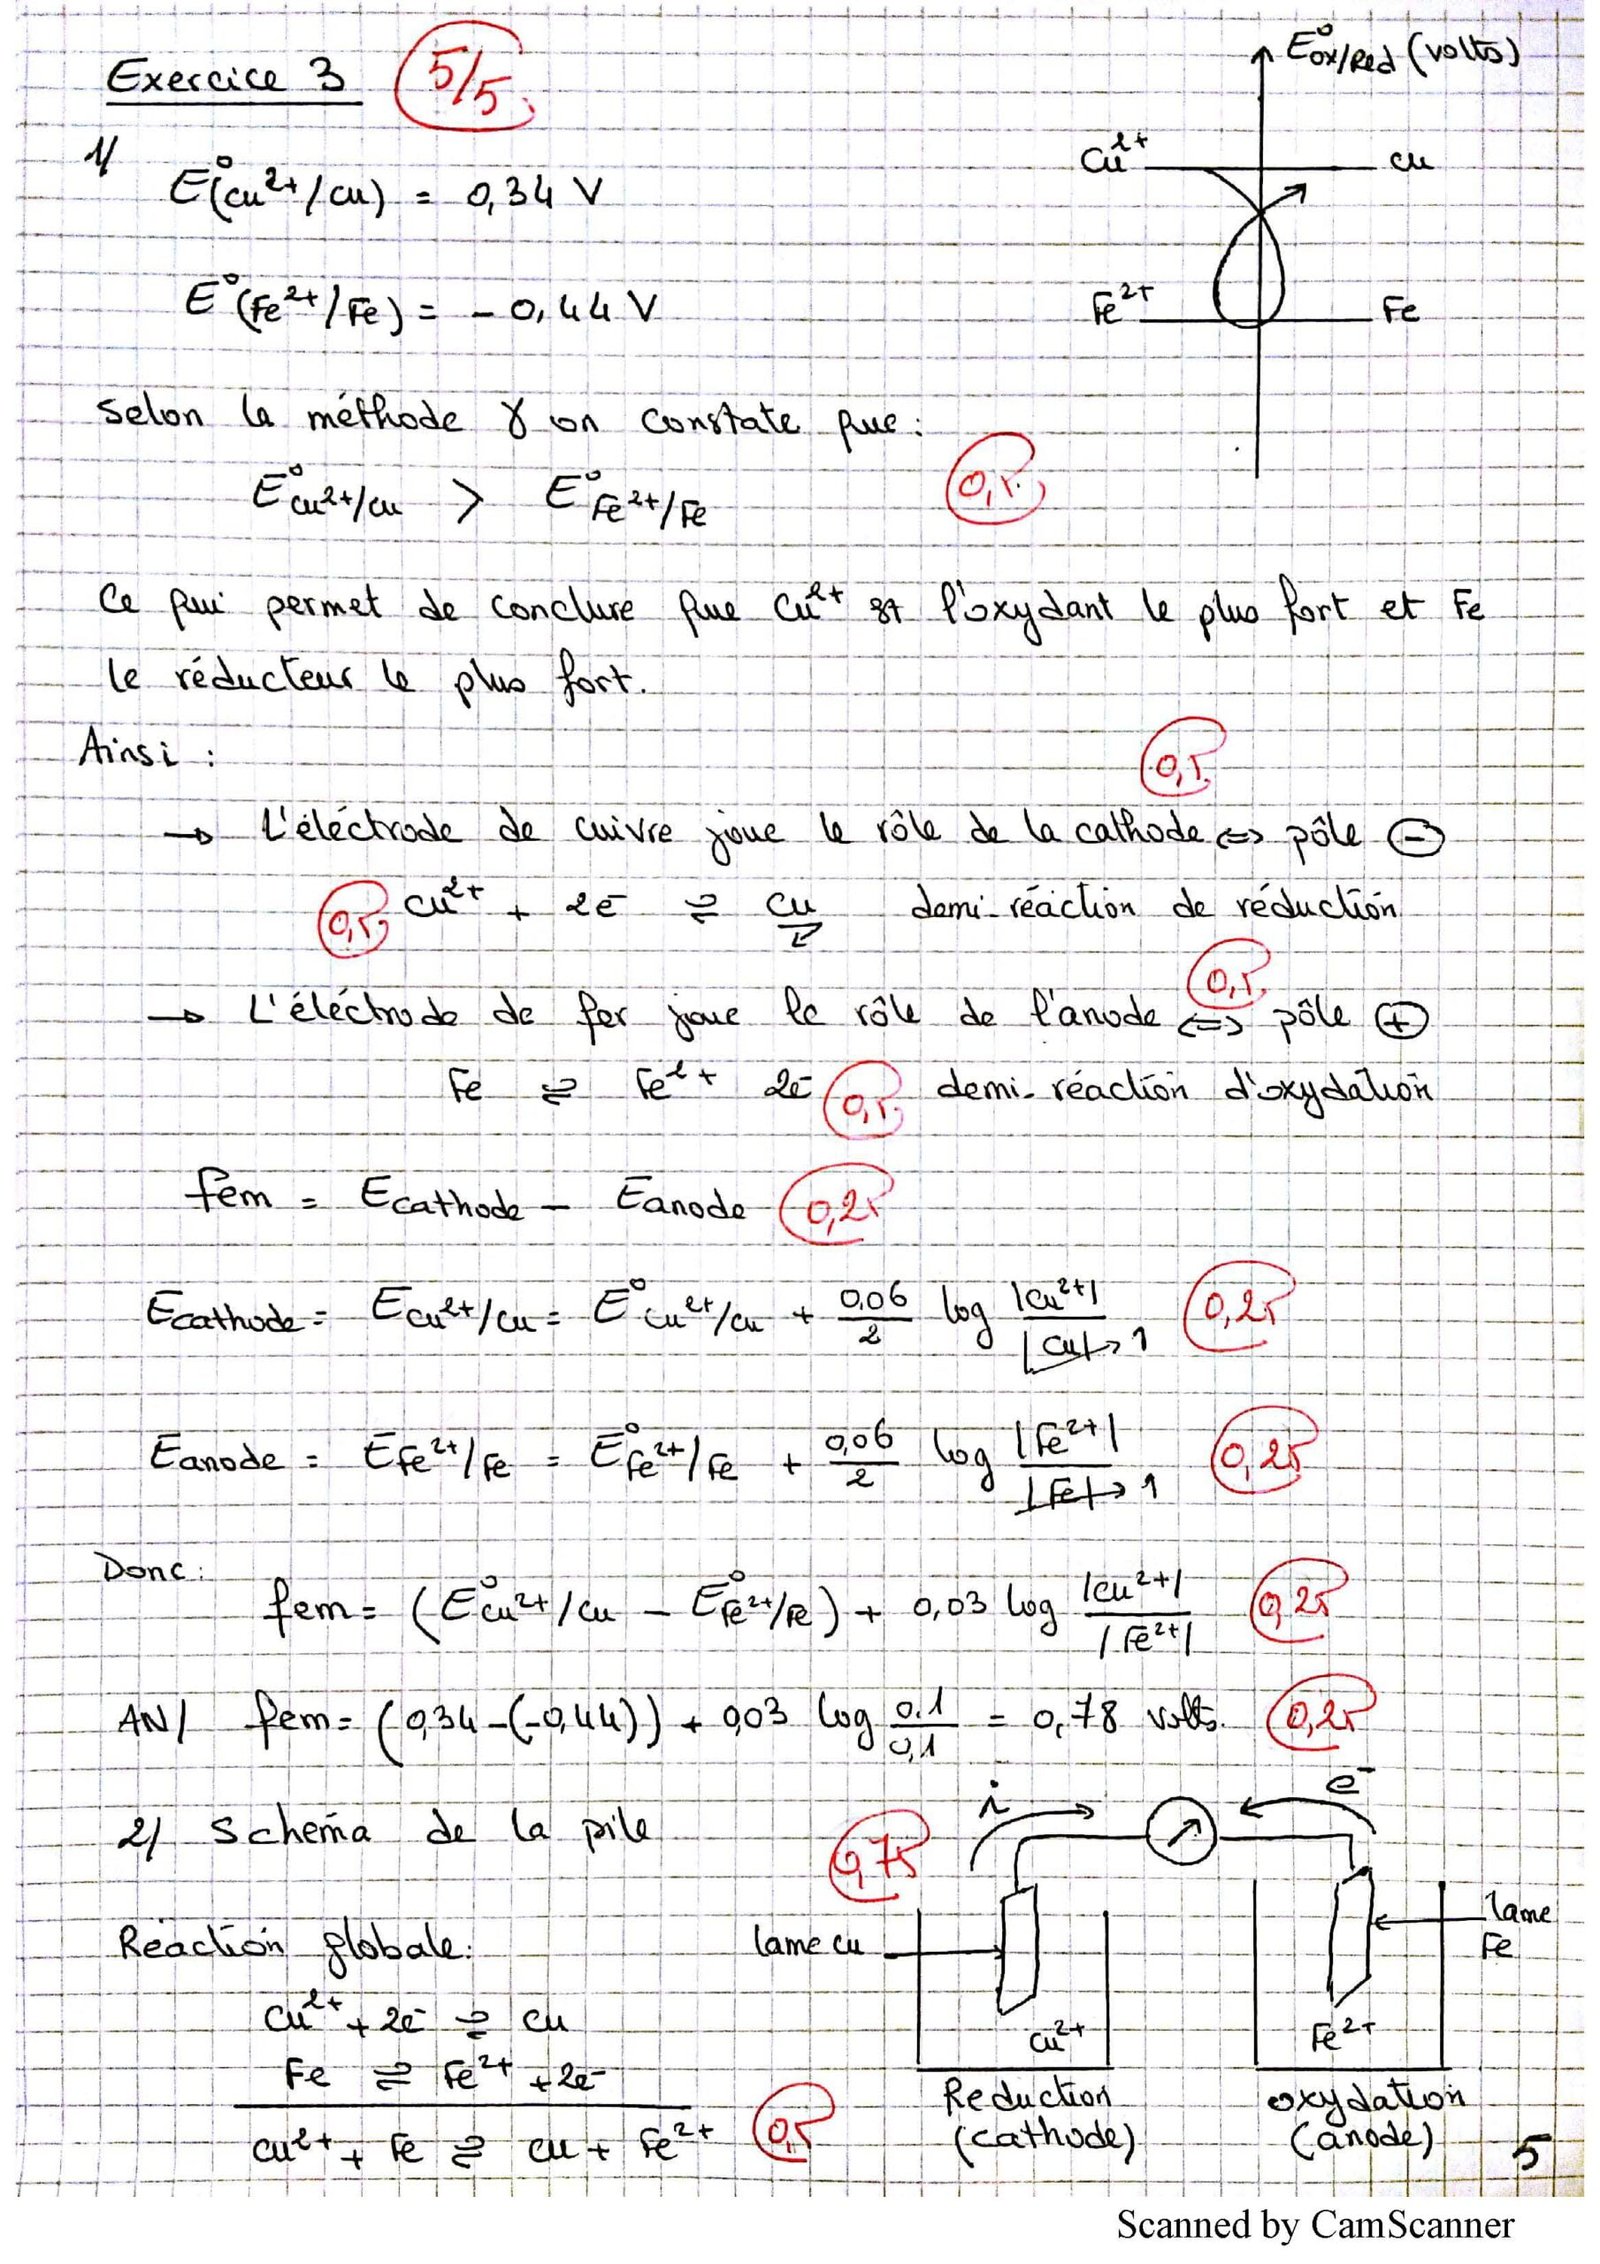 Exercice 3
5/5
E°ox/Red (volts)
1/
E°(cu²⁺/cu) = 0,34 V
Cu²⁺ cu
E°(Fe²⁺/Fe) = - 0,44 V
Fe²⁺ Fe
selon la méthode γ on constate que :
E°cu²⁺/cu > E°Fe²⁺/Fe
0,5
Ce qui permet de conclure que Cu²⁺ est l'oxydant le plus fort et Fe
le réducteur le plus fort.
Ainsi :
0,5
→ L'éléctrode de cuivre joue le rôle de la cathode ⇔ pôle ⊖
0,5 Cu²⁺ + 2e⁻ ⇌ Cu demi-réaction de réduction
0,5
→ L'éléctrode de fer joue le rôle de l'anode ⇔ pôle ⊕
Fe ⇌ Fe²⁺ 2e⁻ 0,5 demi-réaction d'oxydation
fem = Ecathode - Eanode 0,25
Ecathode = Ecu²⁺/cu = E°cu²⁺/cu + 0,06/2 log |cu²⁺|/|cu|→1 0,25
Eanode = EFe²⁺/Fe = E°Fe²⁺/Fe + 0,06/2 log |Fe²⁺|/|Fe|→1 0,25
Donc :
fem = (E°cu²⁺/cu - E°Fe²⁺/Fe) + 0,03 log |cu²⁺|/|Fe²⁺| 0,25
AN/ fem = (0,34-(-0,44)) + 0,03 log 0,1/0,1 = 0,78 volts. 0,25
2/ Schéma de la pile
0,75
i e⁻
lame cu
lame
Fe
Cu²⁺ Fe²⁺
Reduction
(cathode)
oxydation
(anode)
Réaction globale :
Cu²⁺ + 2e⁻ ⇌ cu
Fe ⇌ Fe²⁺ + 2e⁻
cu²⁺ + Fe ⇌ cu + Fe²⁺ 0,5
5
Scanned by CamScanner